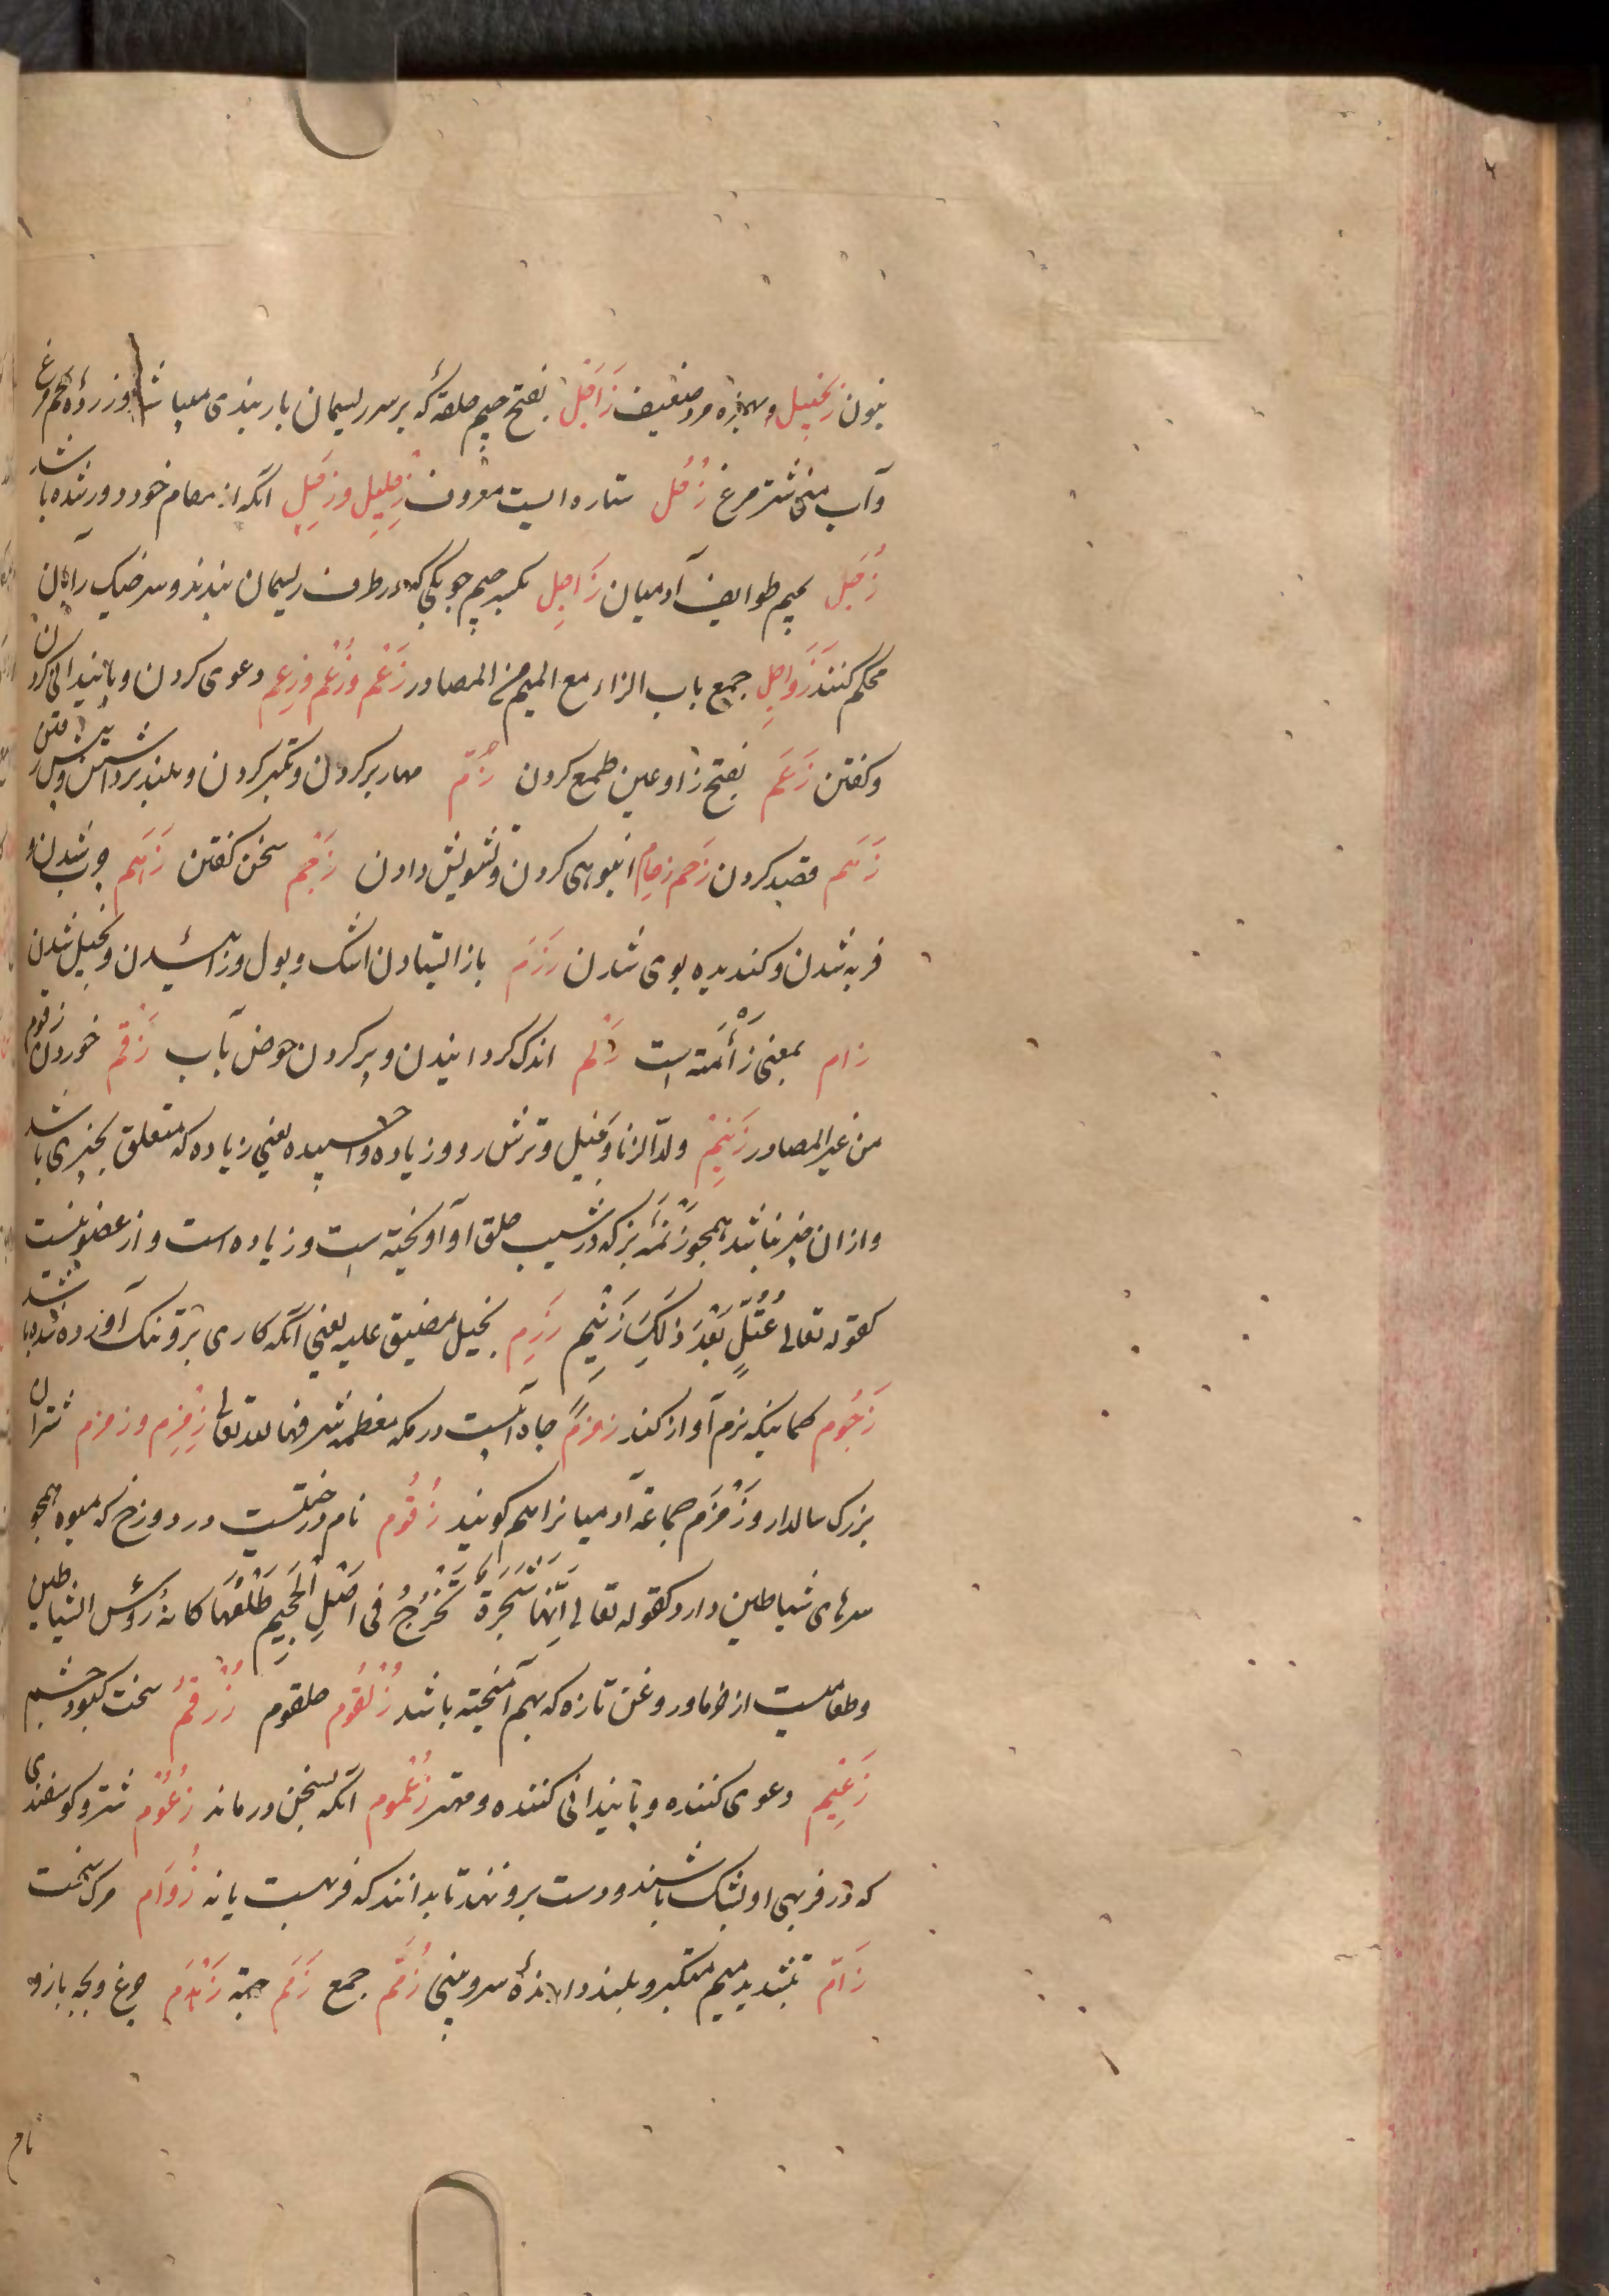 بنون زنجیل و بهمزه مرد ضعیف زَاجَل بفتح جیم حلقهٔ که بر سر ریسمان باربندی میباشد و زردهٔ تخم مرغ
وآب منی شتر مرغ زُحَل ستاره ایست معروف زِحلیل و زَحِل آنکه از مقام خود دور شده باشد
زُجَل بجیم طوایف آدمیان زَاجِل بکسر جیم چوبکی که در طرف ریسمان بندند و سر خیک را بآن
محکم کنند زَوَاجِل جمع باب الزاء مع المیم من المصادر زَعْم و زُعْم و زِعم دعوی کردن و پایندانی کردن
و کفتن زَعَم بفتح زا و عین طمع کردن زَمّ مهار بر کردن و تکبر کردن و بلند برداشتن و پیش رفتن
زَءَم قصد کردن زَحم زحام انبوهی کردن و تشویش دادن زَجْم سخن کفتن زَهَم چرب شدن و
فربه شدن و کندیده بوی شدن زَرَم باز ایستادن اشک و بول و زائیدن و بخیل شدن
زام بمعنی زَأْمَة است زَلم اندک کردانیدن و پر کردن حوض آب زَقْم خوردن زقوم
من غیر المصادر زَنِیْم ولد الزنا و بخیل و ترش رو و زیاده و اچسپیده یعنی زیاده که متعلق بچیزی باشد
و از ان چیز نباشد همچو زَنَمَهٔ بز که در شیب حلق او آویخته است و زیاده است و از عضو نیست
کقوله تعالی عُتُلٍّ بَعْدَ ذٰلِکَ زَنِیْم زَرِم بخیل مضیق علیه یعنی آنکه کاری برو تنک آورده شده باشد
زَجُوم کمانیکه نرم آواز کند زمزم چاه آبیست در مکه معظمه شرفها الله تعالی زِمْزِم و زمزم شتران
بزرک سالدار و زَمْزَم جماعة آدمیانرا هم کویند زَقُوم نام درختیست در دوزخ که میوه همچو
سرهای شیاطین دارد کقوله تعالی اِنَّهَا شَجَرَةٌ تَخْرُجُ فی اَصْلِ الْجَحِیْمِ طَلْعُهَا کانهٔ رؤس الشیاطین
و طعامیست از خرما و روغن تازه که بهم آمیخته باشد زُلْقُوم حلقوم زُرْقُمْ سخت کبود چشم
زَعِیْم دعوی کننده و پایندانی کننده و مهتر زُعْمُوم آنکه بسخن درماند زُعُوْم شتر و کوسفندی
که در فربهی او بشک باشند و دست برو نهند تا بدانند که فربهست یا نه زُوَام مرک سخت
زَامّ بتشدید میم متکبر و بلند دارندهٔ سر و بینی زُمَّم جمع زَمَم جهة زَهْدَم چرغ و بچه باز و
نام